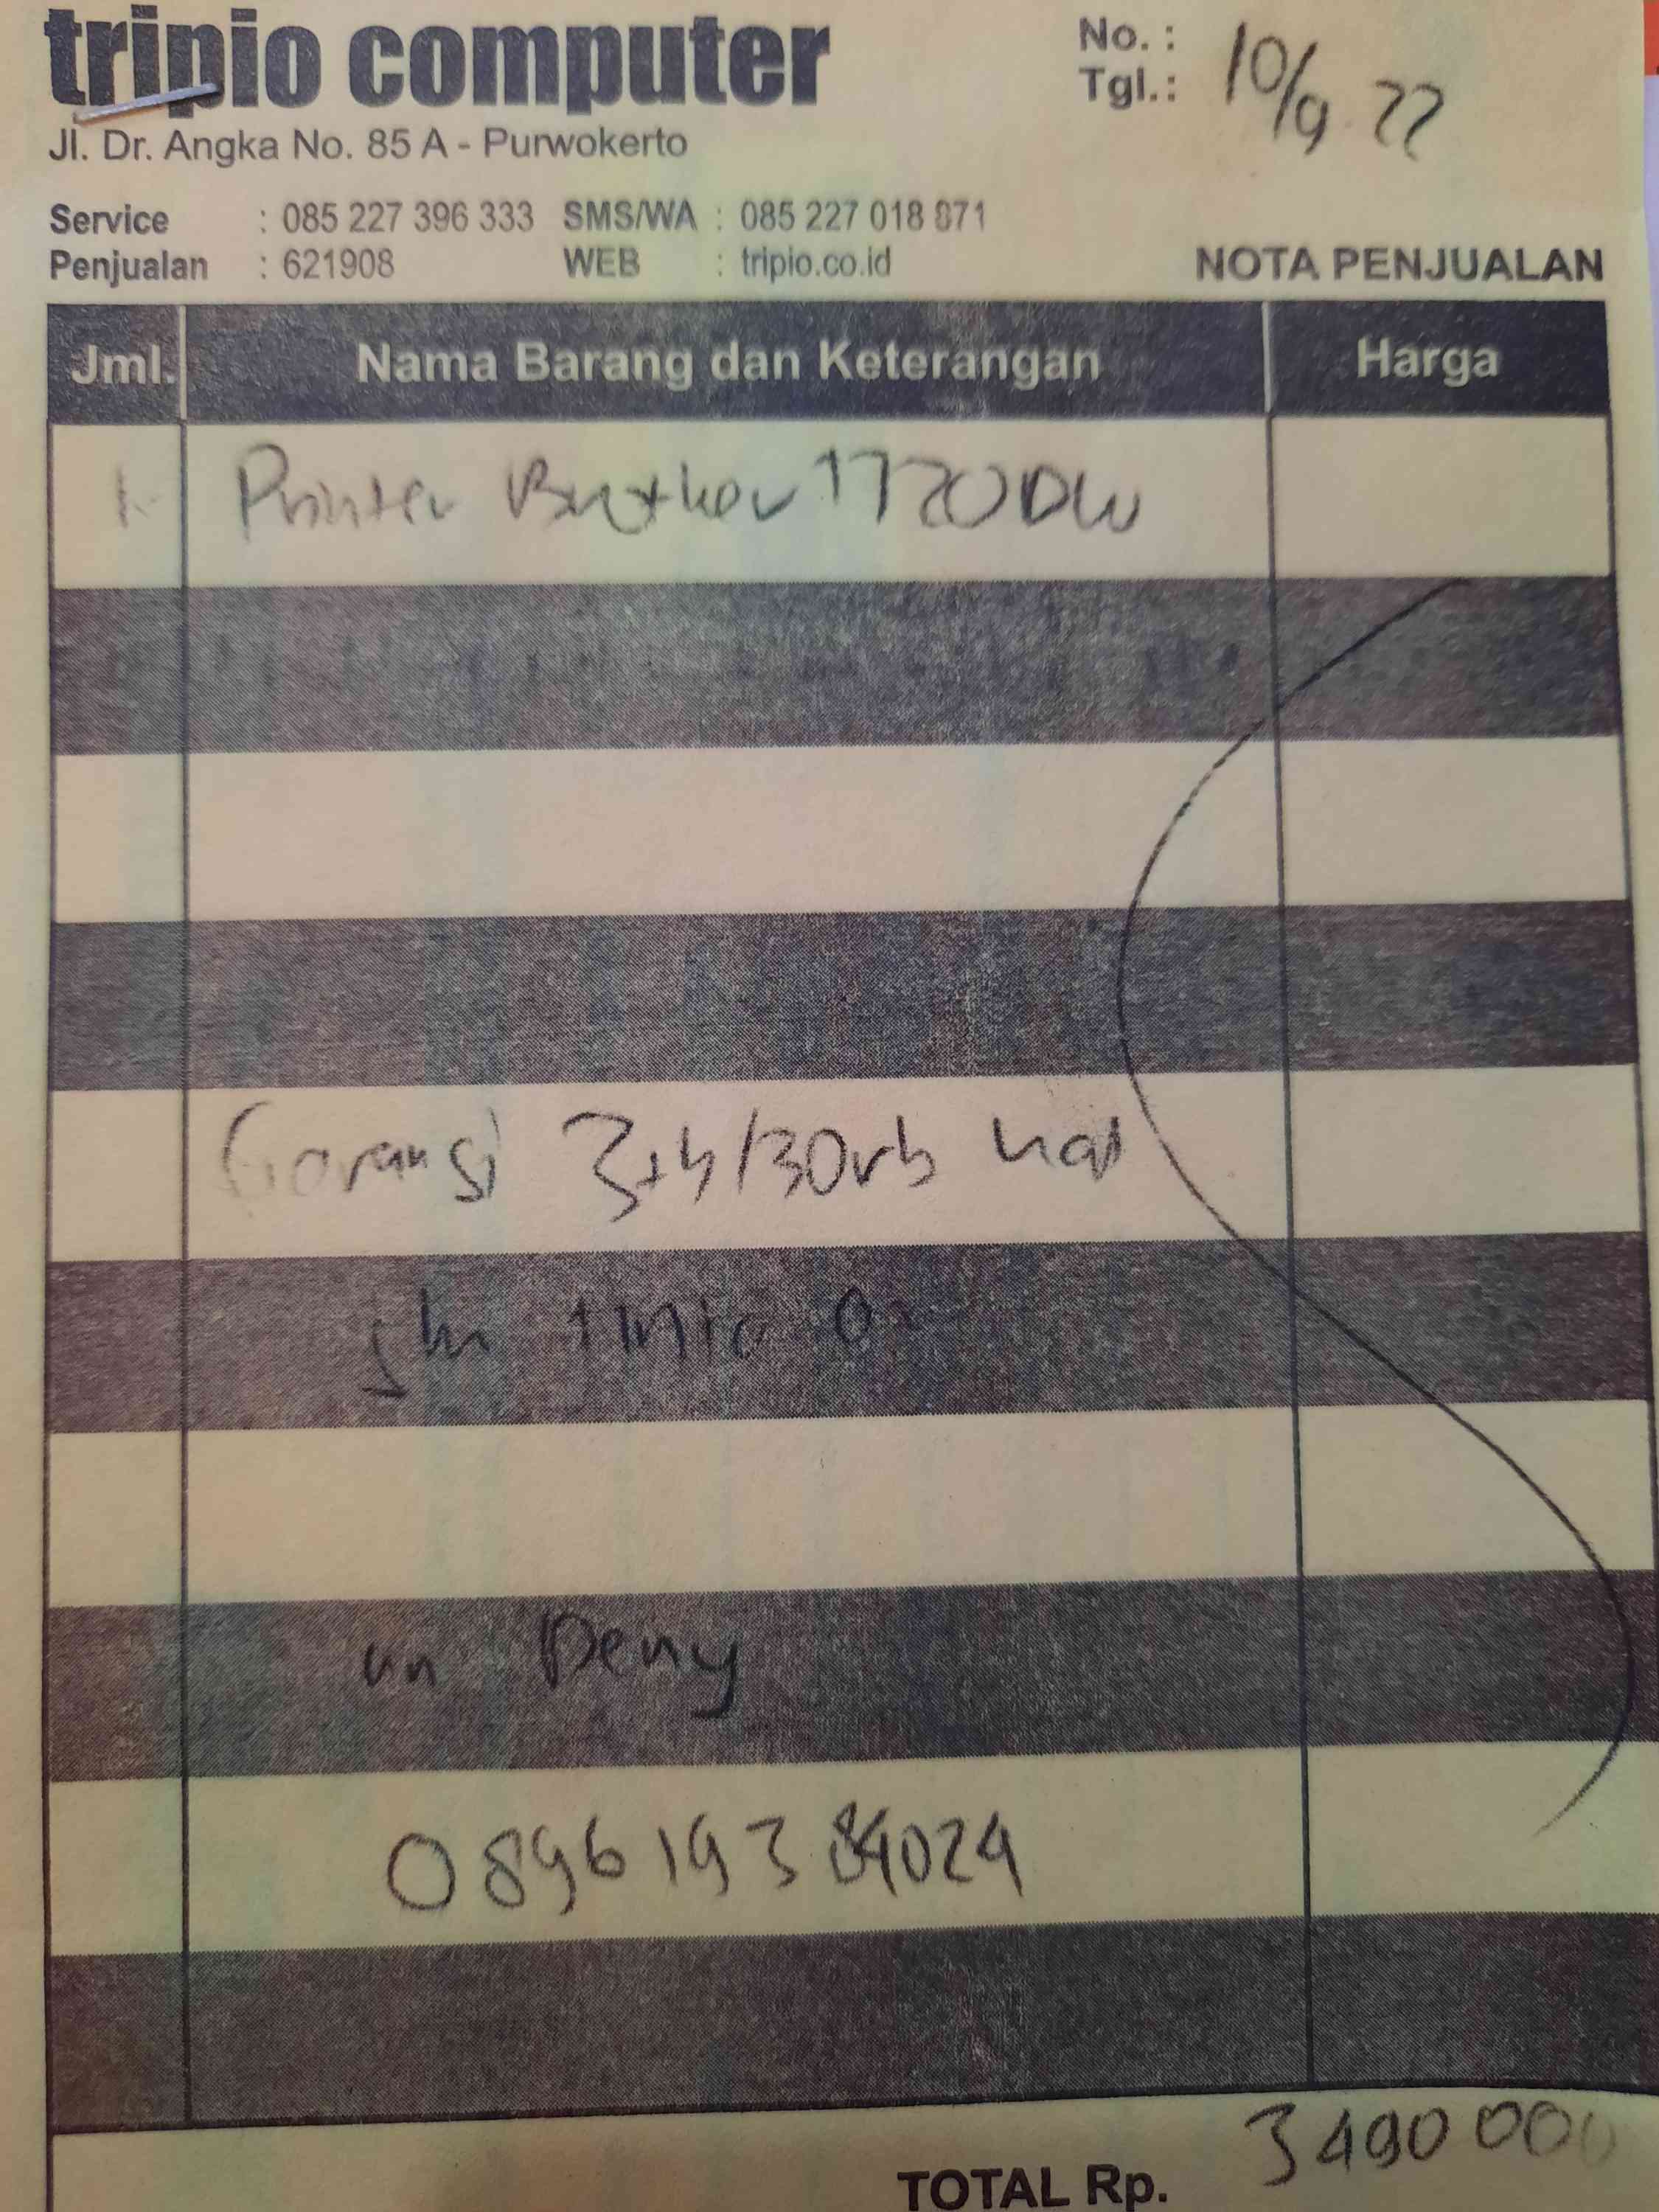 tripio computer
No. :
Tgl.: 10/9 22
Jl. Dr. Angka No. 85 A - Purwokerto
Service : 085 227 396 333 SMS/WA : 085 227 018 871
Penjualan : 621908 WEB : tripio.co.id
NOTA PENJUALAN
Jml. Nama Barang dan Keterangan Harga
1 Printer Brother T720DW
Garansi 3th/30rb
an Deny
TOTAL Rp. 3490 000